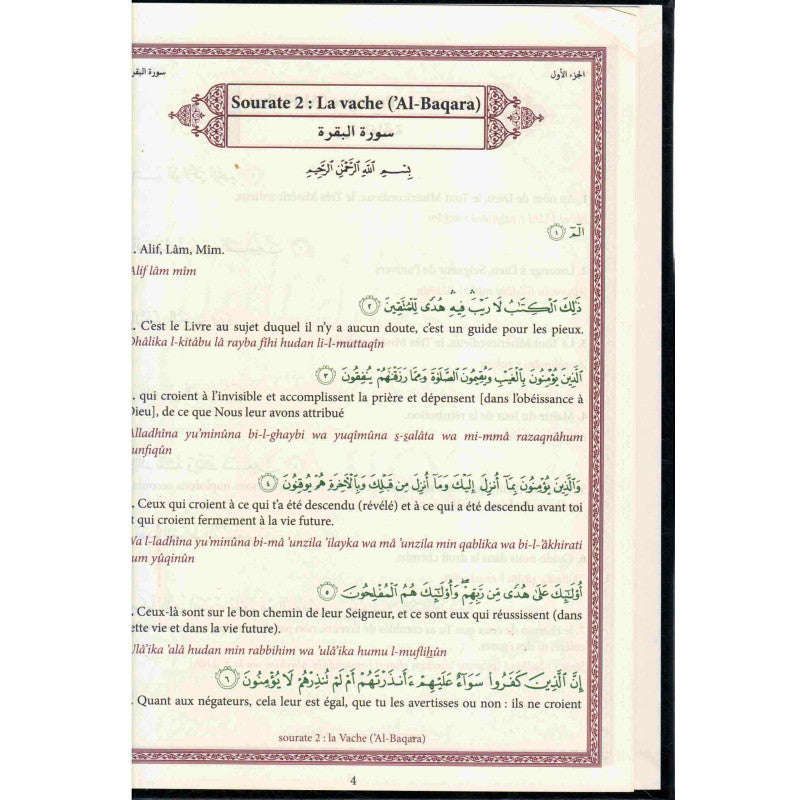 سورة البقر
الجزء الأول
Sourate 2 : La vache (’Al-Baqara)
سورة البقرة
بِسْمِ اللَّهِ الرَّحْمَٰنِ الرَّحِيمِ
الٓمٓ ١
. Alif, Lâm, Mîm.
Alif lâm mîm
ذَٰلِكَ الْكِتَابُ لَا رَيْبَ ۛ فِيهِ ۛ هُدًى لِلْمُتَّقِينَ ٢
. C’est le Livre au sujet duquel il n’y a aucun doute, c’est un guide pour les pieux.
Dhâlika l-kitâbu lâ rayba fîhi hudan li-l-muttaqîn
الَّذِينَ يُؤْمِنُونَ بِالْغَيْبِ وَيُقِيمُونَ الصَّلَاةَ وَمِمَّا رَزَقْنَاهُمْ يُنْفِقُونَ ٣
. qui croient à l’invisible et accomplissent la prière et dépensent [dans l’obéissance à
Dieu], de ce que Nous leur avons attribué
Alladhîna yu’minûna bi-l-ghaybi wa yuqîmûna s-salâta wa mi-mmâ razaqnâhum
unfiqûn
وَالَّذِينَ يُؤْمِنُونَ بِمَا أُنْزِلَ إِلَيْكَ وَمَا أُنْزِلَ مِنْ قَبْلِكَ وَبِالْآخِرَةِ هُمْ يُوقِنُونَ ٤
. Ceux qui croient à ce qui t’a été descendu (révélé) et à ce qui a été descendu avant toi
t qui croient fermement à la vie future.
Wa l-ladhîna yu’minûna bi-mâ ’unzila ’ilayka wa mâ ’unzila min qablika wa bi-l-’âkhirati
um yûqinûn
أُولَٰئِكَ عَلَىٰ هُدًى مِنْ رَبِّهِمْ ۖ وَأُولَٰئِكَ هُمُ الْمُفْلِحُونَ ٥
. Ceux-là sont sur le bon chemin de leur Seigneur, et ce sont eux qui réussissent (dans
ette vie et dans la vie future).
’Ulâ’ika ’alâ hudan min rabbihim wa ’ulâ’ika humu l-muflihûn
إِنَّ الَّذِينَ كَفَرُوا سَوَاءٌ عَلَيْهِمْ ءَأَنْذَرْتَهُمْ أَمْ لَمْ تُنْذِرْهُمْ لَا يُؤْمِنُونَ ٦
. Quant aux négateurs, cela leur est égal, que tu les avertisses ou non : ils ne croient
sourate 2 : la Vache (’Al-Baqara)
4